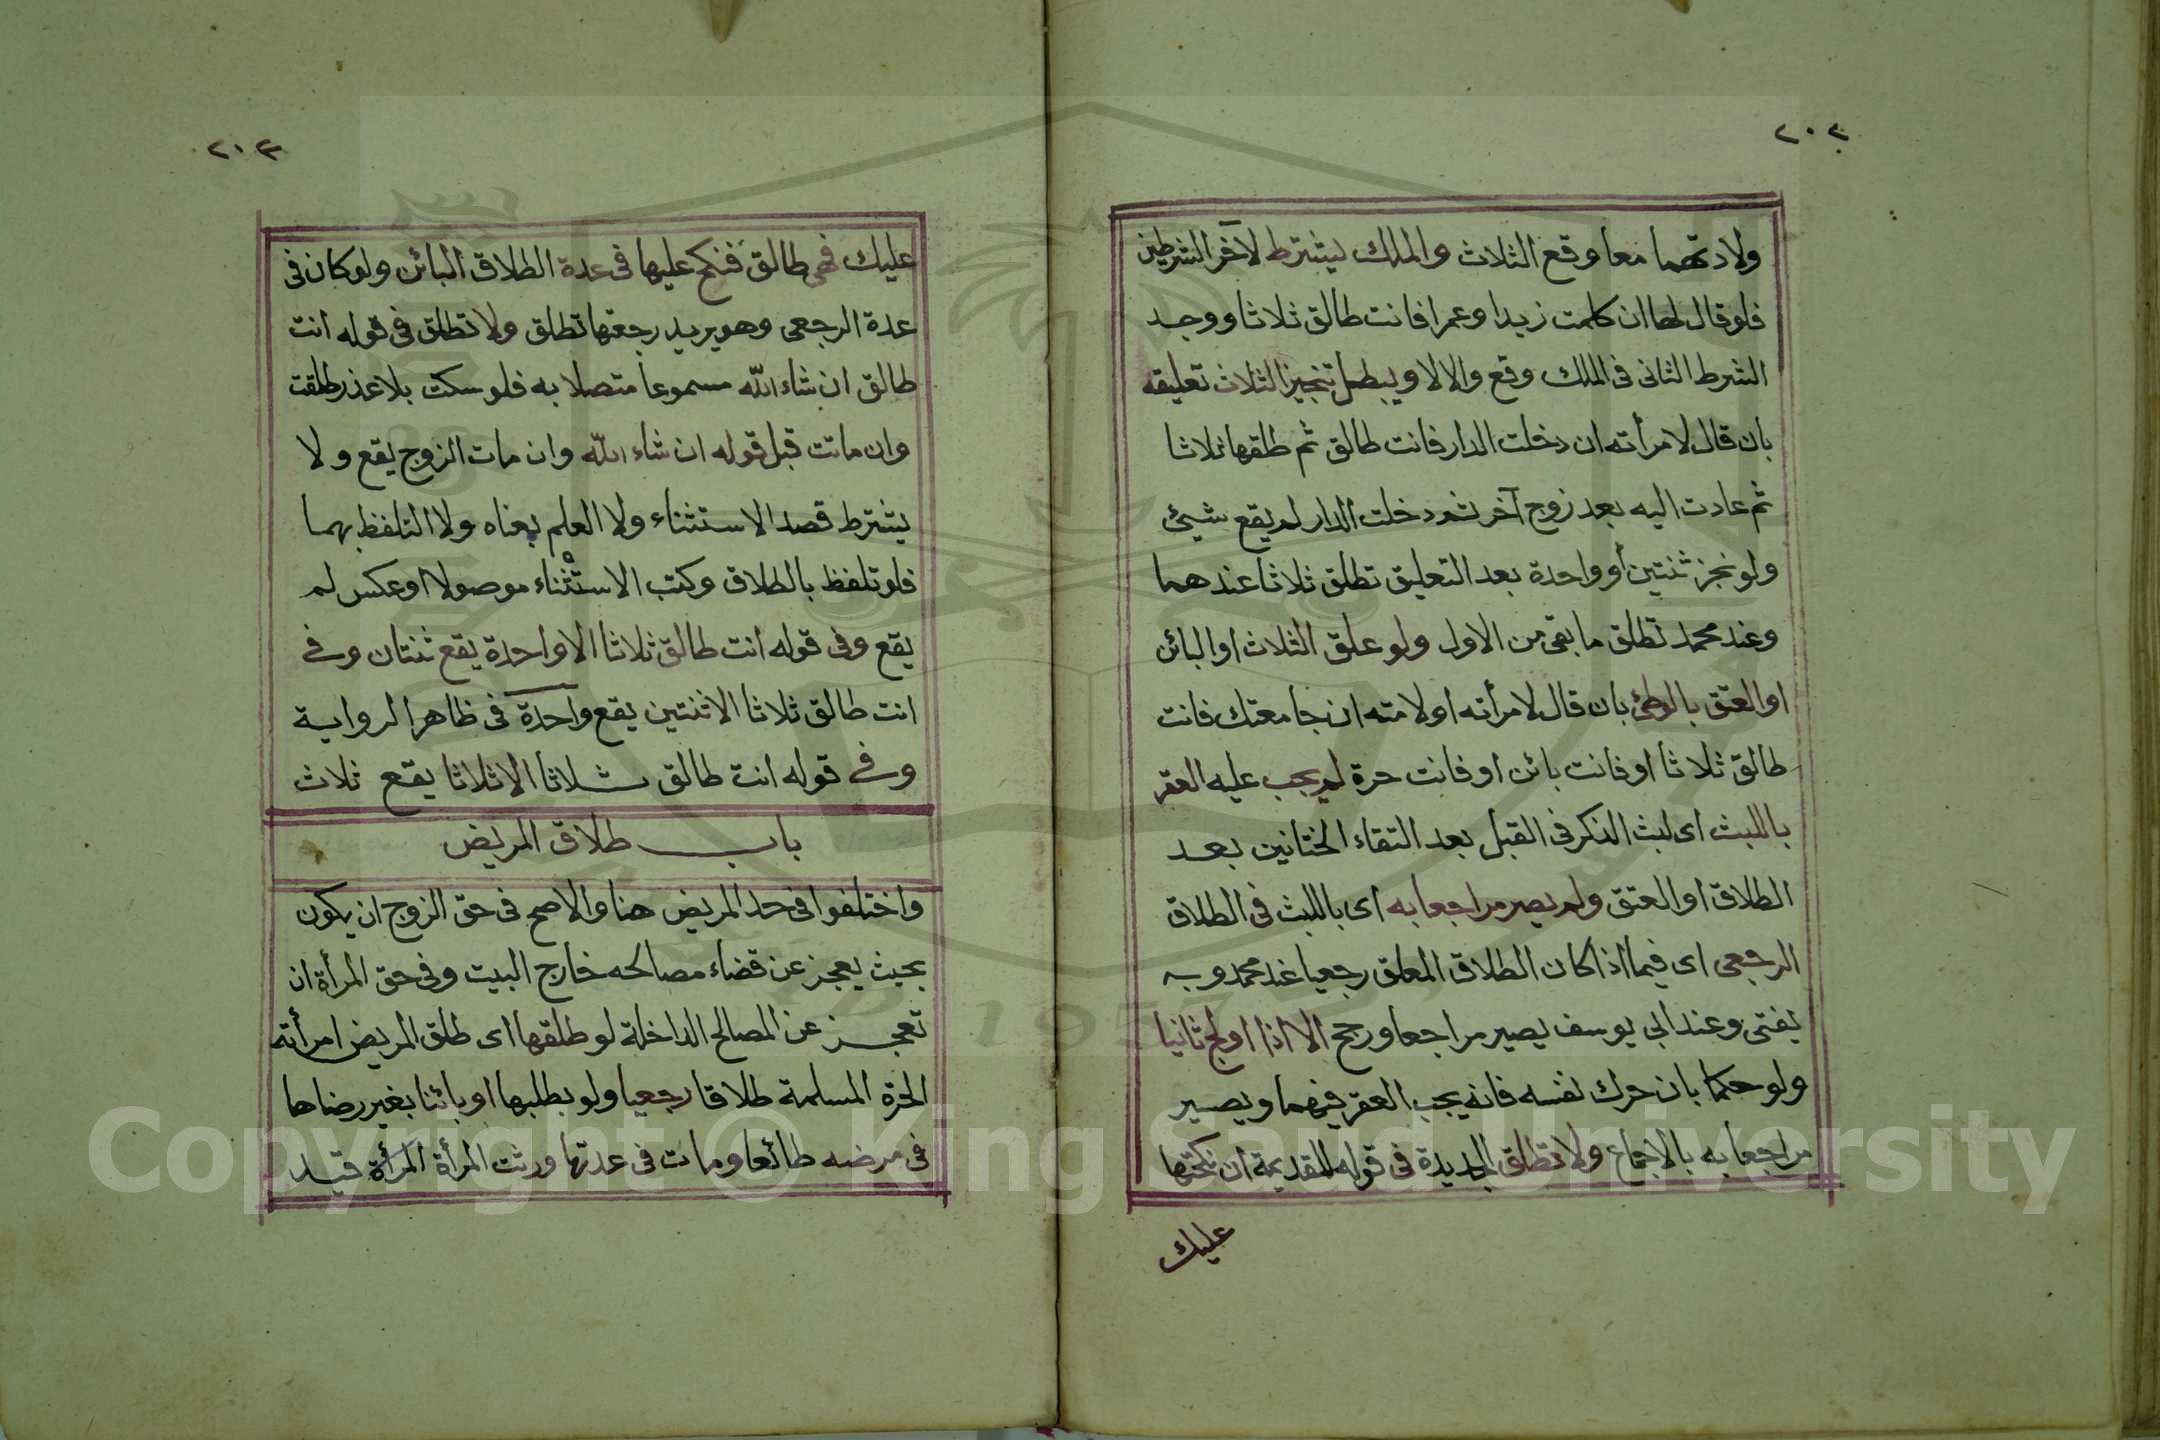 ٢٠٢
ولادتهما معا وقع الثلاث والملك يشترط لآخر الشرطين
فلو قال لها ان كلمت زيدا وعمرا فانت طالق ثلاثا ووجد
الشرط الثاني في الملك وقع والا لا ويبطل تنجيز الثلاث تعليقه
بان قال لامرأته ان دخلت الدار فانت طالق ثم طلقها ثلاثا
ثم عادت اليه بعد زوج آخر ثم دخلت الدار لم يقع شيئ
ولو نجز ثنتين أو واحدة بعد التعليق تطلق ثلاثا عندهما
وعند محمد تطلق ما بقى من الاول ولو علق الثلاث او البائن
او العتق بالوطئ بان قال لامرأته او لامته ان جامعتك فانت
طالق ثلاثا او فانت بائن او فانت حرة لم يجب عليه العقر
باللبث اى لبث الذكر فى القبل بعد التقاء الختانين بعد
الطلاق او العتق ولم يصير مراجعا به اى باللبث فى الطلاق
الرجعى اى فيما اذا كان الطلاق المعلق رجعيا عند محمد وبه
يفتى وعند ابى يوسف يصير مراجعا ورجح الا اذا اولج ثانيا
ولو حكما بان حرك نفسه فانه يجب العقر فيهما ويصير
مراجعا به بالاجماع ولا تطلق الجديدة فى قوله للقديمة ان نكحتها
عليك
٢٠٣
عليك فهى طالق فنكح عليها فى عدة الطلاق البائن ولو كان فى
عدة الرجعى وهو يريد رجعتها تطلق ولا تطلق فى قوله انت
طالق ان شاء الله مسموعا متصلا به فلو سكت بلا عذر طلقت
وان ماتت قبل قوله ان شاء الله وان مات الزوج يقع ولا
يشترط قصد الاستثناء ولا العلم بمعناه ولا التلفظ بهما
فلو تلفظ بالطلاق وكتب الاستثناء موصولا او عكس لم
يقع وفى قوله انت طالق ثلاثا الا واحدة يقع ثنتان وفى
انت طالق ثلاثا الا ثنتين يقع واحدة فى ظاهر الرواية
وفى قوله انت طالق ثلاثا الا ثلاثا يقع ثلاث
باب طلاق المريض
واختلفوا فى حد المريض هنا والاصح فى حق الزوج ان يكون
بحيث يعجز عن قضاء مصالحه خارج البيت وفى حق المرأة ان
تعجز عن المصالح الداخلة لو طلقها اى طلق المريض امرأته
الحرة المسلمة طلاقا رجعيا ولو بطلبها او بائنا بغير رضاها
فى مرضه طائعا ومات فى عدتها ورثت المرأة المرأة قيد
Copyright © King Saud University
1957